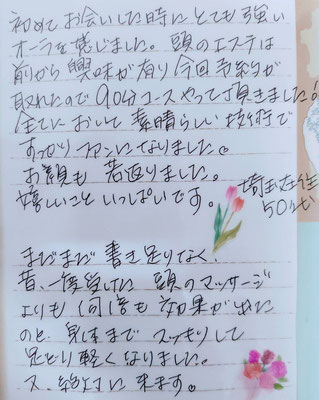 初めてお会いした時にとても強い
オーラを感じました。頭のエステは
前から興味が有り今回予約が
取れたので90分コースやって頂きました!
全てにおいて素晴らしい技術で
すっかりファンになりました。
お顔も若返りました。
嬉しいこといっぱいです。
埼玉在住
50代
まだまだ書き足りなく、
昔、一度受けた頭のマッサージ
よりも何倍も効果が出た
のと、身体までスッキリして
足どり軽くなりました。
又、絶対に来ます。